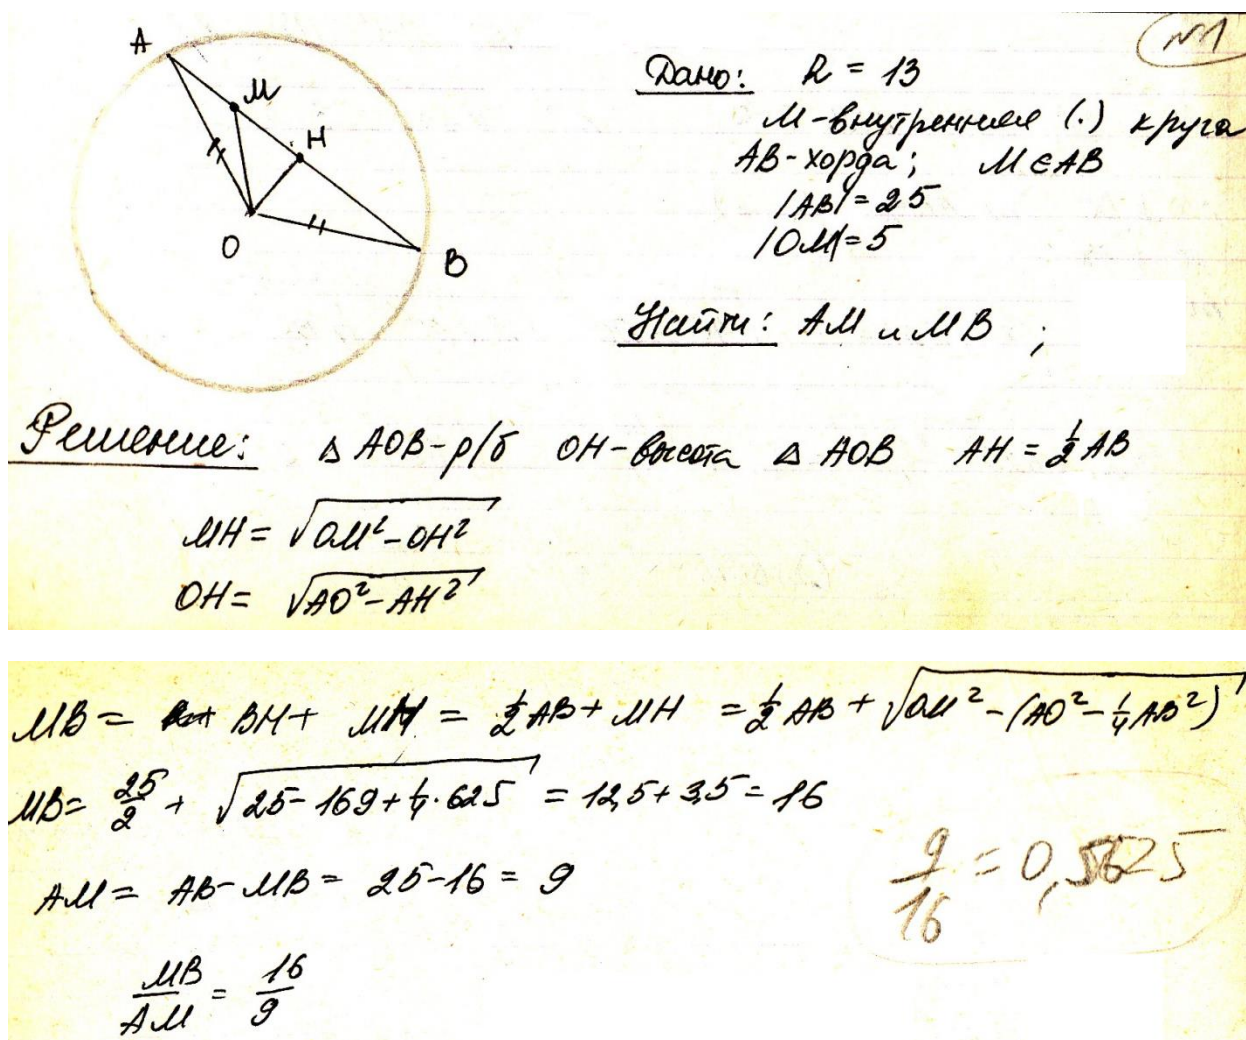 №1
A
M
H
O
B
Дано: R = 13
M - внутренняя (·) круга
AB - хорда; M ∈ AB
|AB| = 25
|OM| = 5
Найти: AM и MB ;
Решение: △ AOB - р/б OH - высота △ AOB AH = 1/2 AB
MH = √(OM² - OH²)
OH = √(AO² - AH²)
MB = BH + MH = 1/2 AB + MH = 1/2 AB + √(OM² - (AO² - 1/4 AB²))
MB = 25/2 + √(25 - 169 + 1/4 · 625) = 12,5 + 3,5 = 16
AM = AB - MB = 25 - 16 = 9
9/16 = 0,5625
MB/AM = 16/9